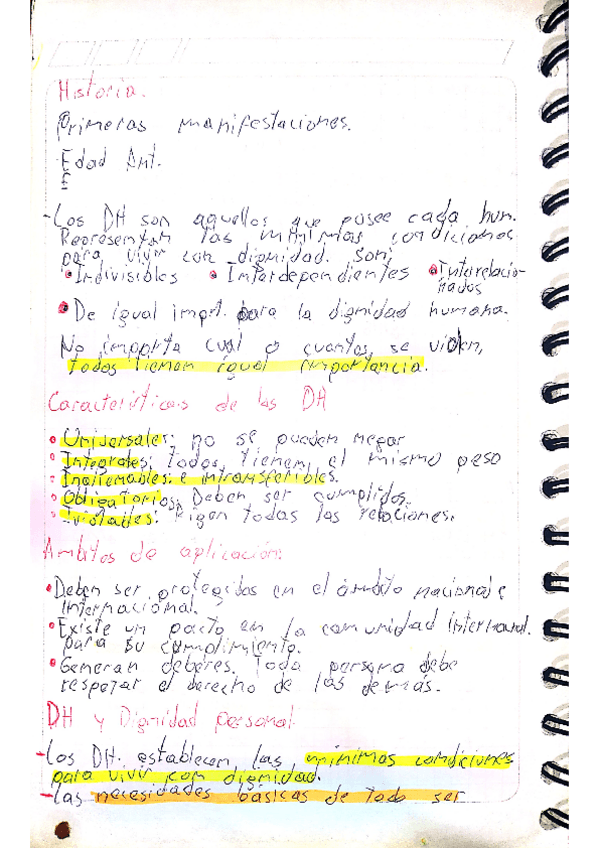 Historia.
Primeras manifestaciones.
Edad Ant.
E
-Los DH son aquellos que posee cada hum.
Representan las mínimas condiciones
para vivir con dignidad. Son;
• Indivisibles • Interdependientes • Interelacio-
nados
• De igual impt. para la dignidad humana.
No importa cual o cuantos se violen,
todos tienen igual importancia.
Características de los DH
• Universales: no se pueden negar
• Integrales: Todos tienen el mismo peso
• Inalienables: e intransferibles.
• Obligatorios: Deben ser cumplidos.
• Rigen todas las relaciones.
Ambitos de aplicación:
• Deben ser protegidos en el ámbito nacional e
internacional.
• Existe un pacto en la comunidad internacional.
para su cumplimiento.
• Generan deberes. Toda persona debe
respetar el derecho de los demás.
DH y Dignidad personal
-Los DH. establecen las mínimas condiciones
para vivir con dignidad.
-Las necesidades básicas de todo ser